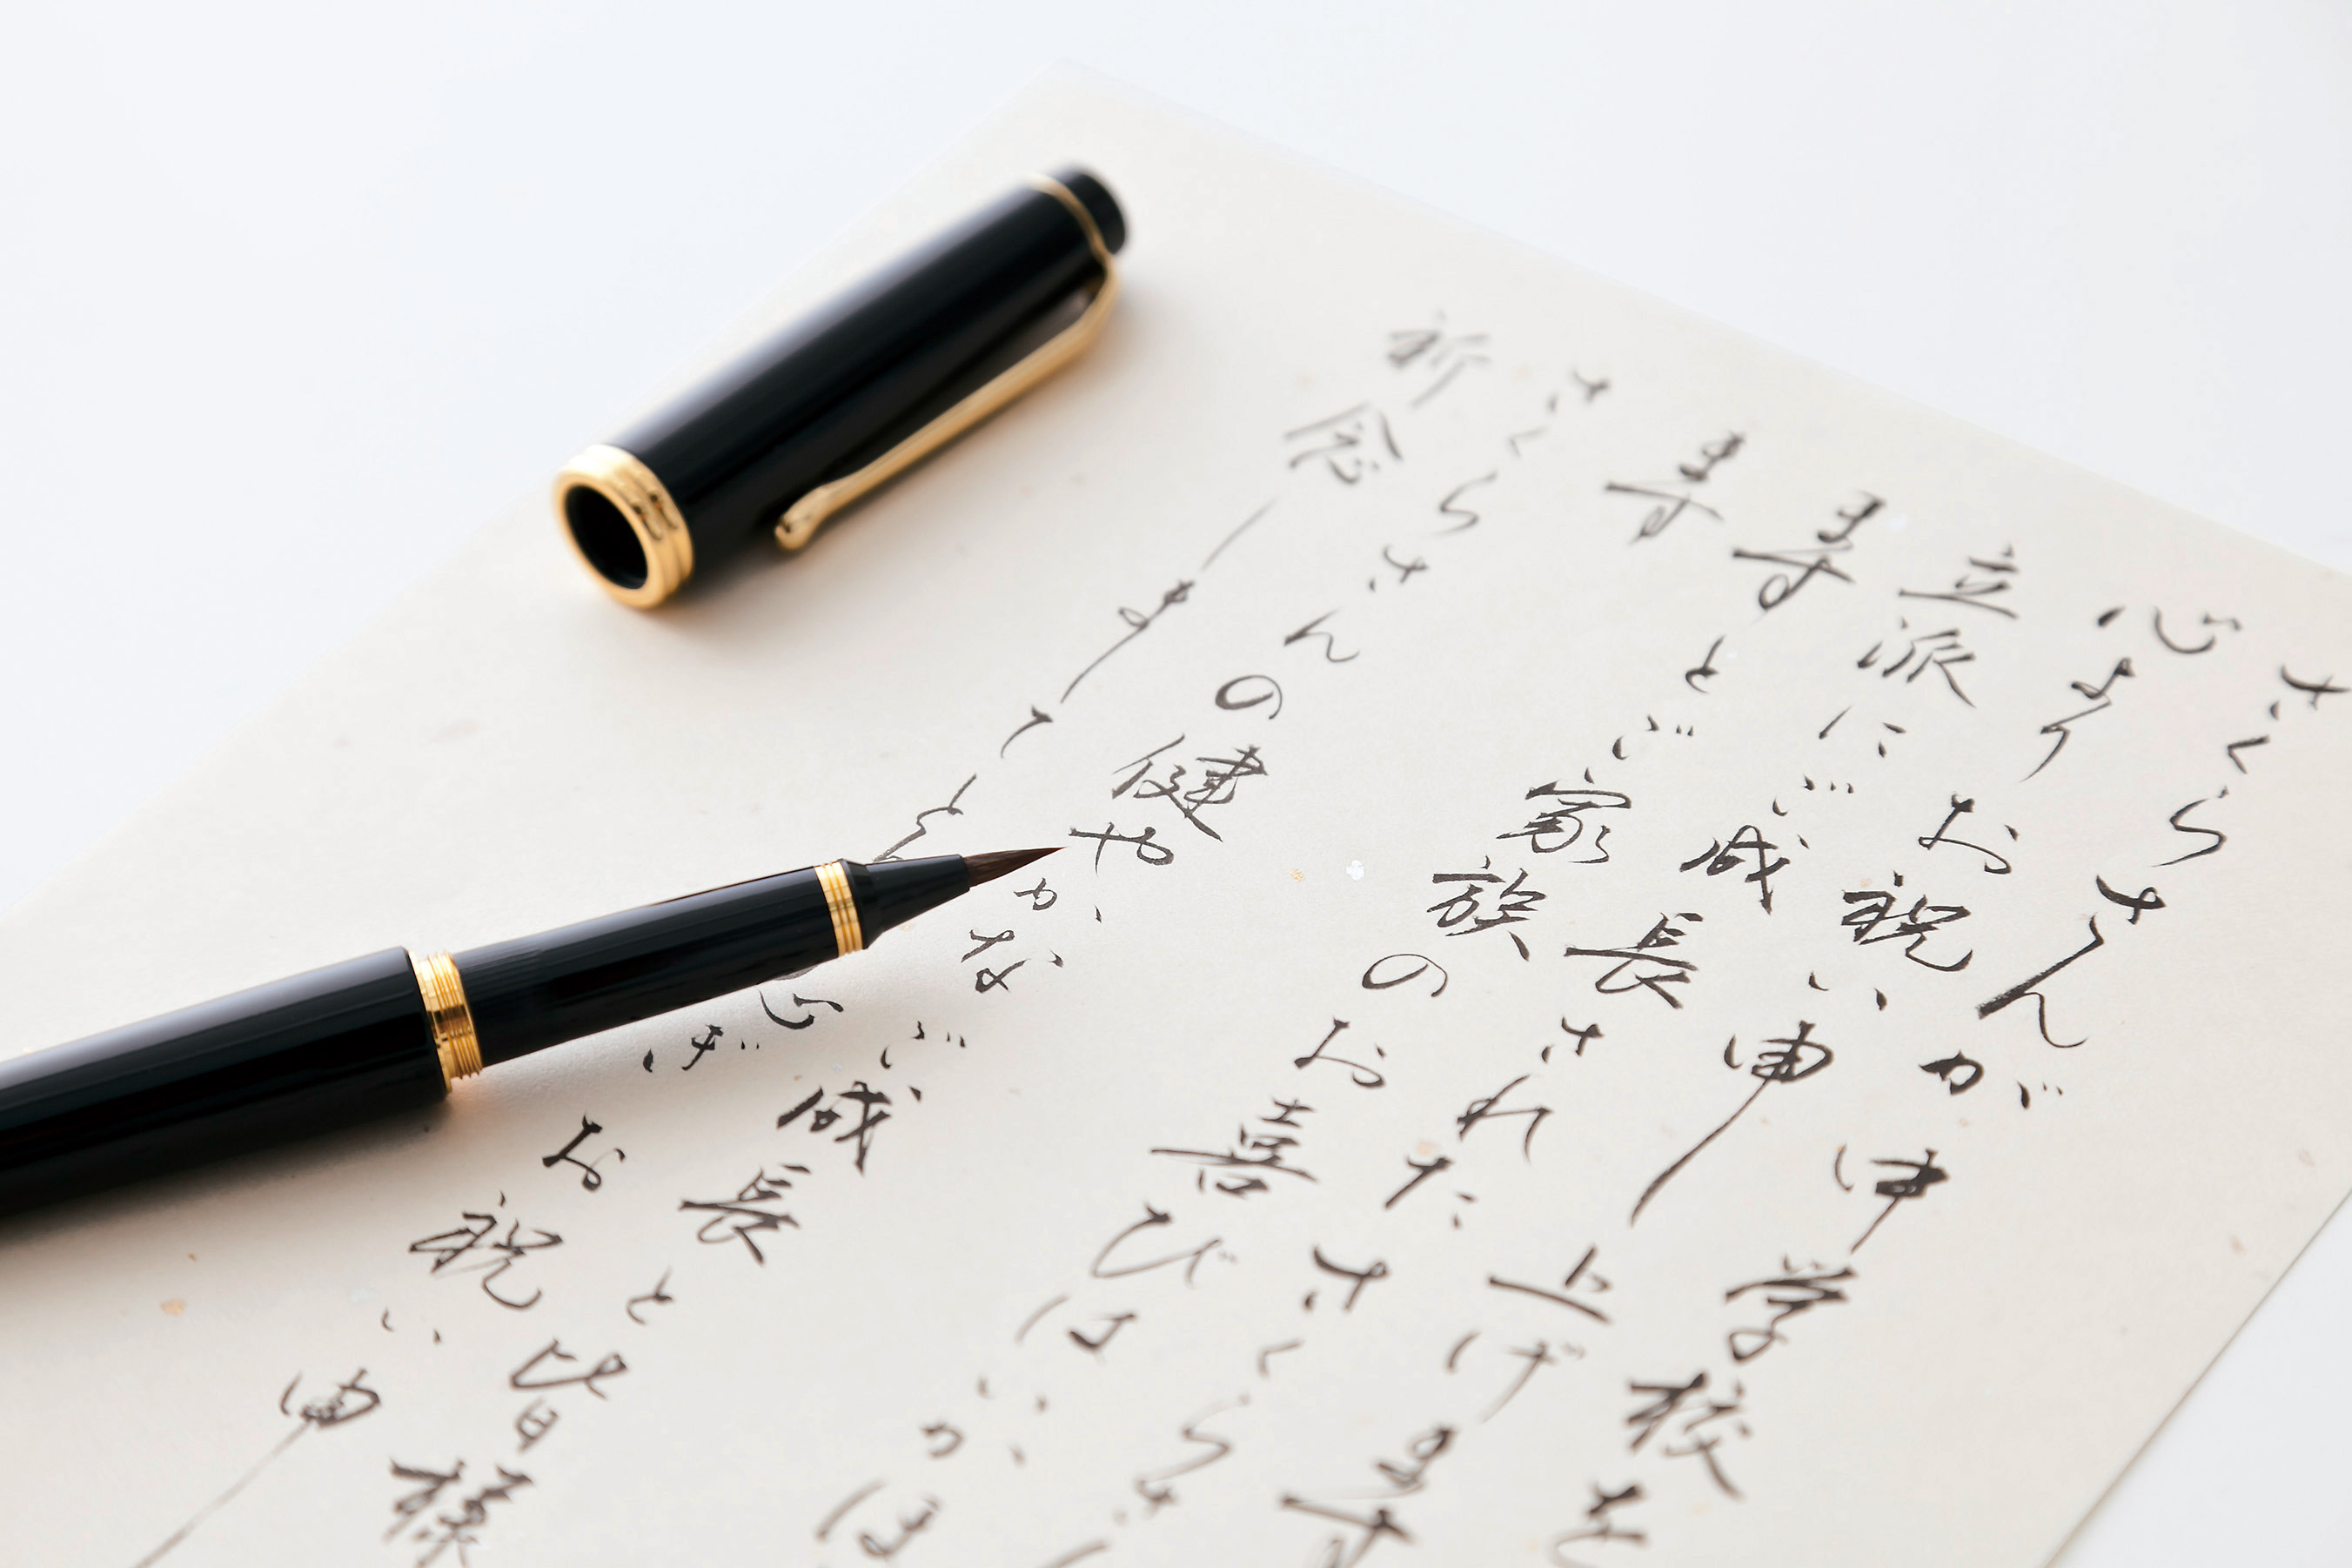 さくらさんが中学校を
心よりお祝い申し上げます
立派にご成長されたさくらさ
寿とご家族のお喜びはいかほ
寿
さくらさんの健やかなご成長と皆様
祈念しまして心よりお祝い申し